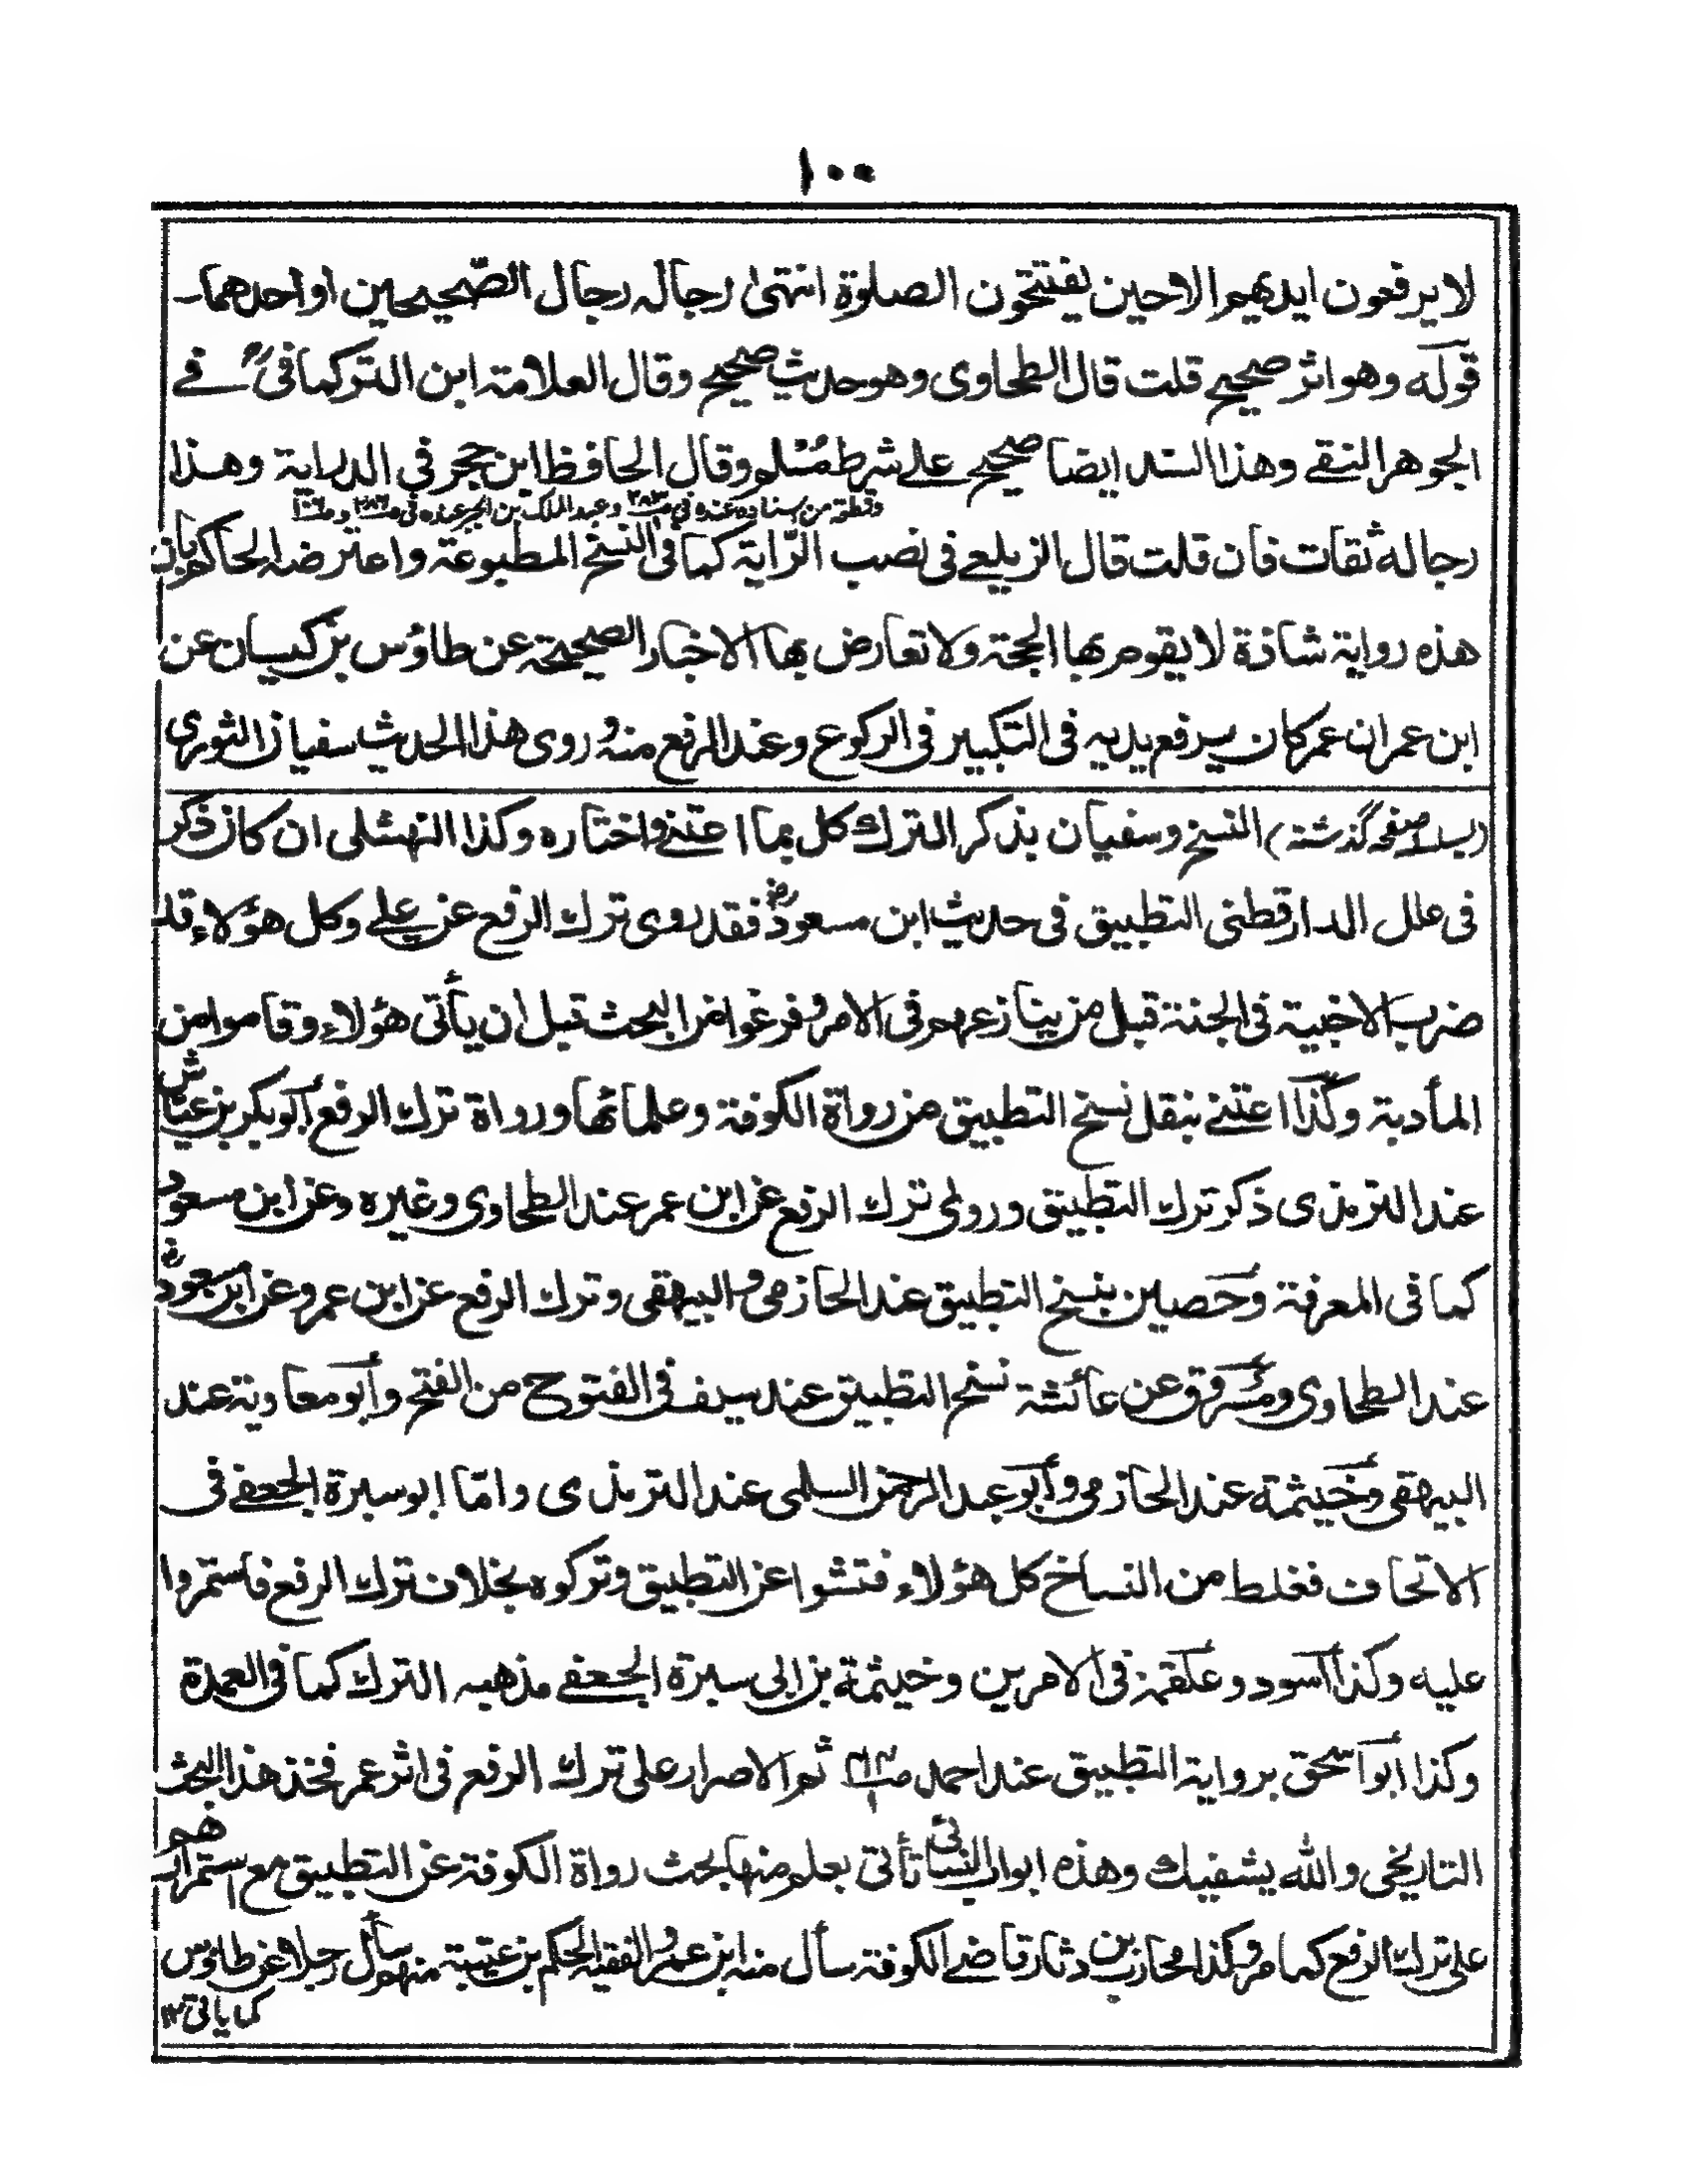 ١٠٠
لا يرفعون ايديهم الا حين يفتتحون الصلوة انتهىٰ رجاله رجال الصّحيحين او احدهما۔
قولَه وهو اثر صحيح قلت قال الطحاوى وهو حديث صحيح وقال العلامة ابن التركمانى فے
الجوهر النقے وهذا السند ايضا صحيح علے شرط مُسْلم وقال الحافظ ابن حجر فى الدراية وهذا
وقطعة من اسناده عنده فى ٢٨٣ وعبد الملك بن ابجر عنده فى
رجاله ثقات فان قلت قال الزيلعے فى نصب الرّاية كما فى النسخ المطبوعة واعترضه الحاكم بان
هذه رواية شاذة لا يقوم بها الحجة ولا تعارض بها الاخبار الصحيحة عن طاؤس بن كيسان عن
ابن عمر ان عمر كان يرفع يديه فى التكبير فى الركوع وعند الرفع منه وروى هذا الحديث سفيان الثورى
(بسلسلہ صفحہ گذشتہ) النسخ وسفيان بذكر الترك كل بما اعتنے واختاره وكذا النهشلى ان كان ذكر
فى علل الدارقطنى التطبيق فى حديث ابن مسعودؓ فقد روى ترك الرفع عن علے وكل هؤلاء قد
ضرب الاخبية فى الجنة قبل من ينازعهم فى الامر وفرغوا من البحث قبل ان يأتى هؤلاء وقاموا من
المأدبة وكَذا اعتنے بنقل نسخ التطبيق من رواة الكوفة وعلمائها ورواة ترك الرفع أبو بكر بن عياش
عند الترمذى ذكر ترك التطبيق وروى ترك الرفع عن ابن عمر عند الطحاوى وغيره وعن ابن مسعود
كما فى المعرفة وحَصين بنسخ التطبيق عند الحازمى والبيهقى وترك الرفع عن ابن عمر وعن ابن مسعودؓ
عند الطحاوى ومَسْروق عن عائشة نسخ التطبيق عند سيف فى الفتوح من الفتح وأبو معاوية عند
البيهقى وخَيثمة عند الحازمى وأبو عبد الرحمن السلمى عند الترمذى وامّا ابو سبرة الجعفے فى
الاتحاف فغلط من النساخ كل هؤلاء فتشوا عن التطبيق وتركوه بخلاف ترك الرفع فاستمروا
عليه وكذا أسود وعلقمة فى الامرين وخيثمة بن ابى سبرة الجعفے مذهبه الترك كما فى العمدة
وكذا ابو اسحٰق برواية التطبيق عند احمد ثم الاصرار على ترك الرفع فى اثر عمر فخذ هذا البحث
التاريخى والله يشفيك وهذه ابواب النسائى تأتى بعلم منها بحث رواة الكوفة عن التطبيق مع استمرارهم
على ترك الرفع كما مر وكذا محارب بن دثار قاضے الكوفة سأل منه ابن عمر والفقيه الحكم بن عتيبة منهم سأل رجلا عن طاؤس
كما يأتى ١٢